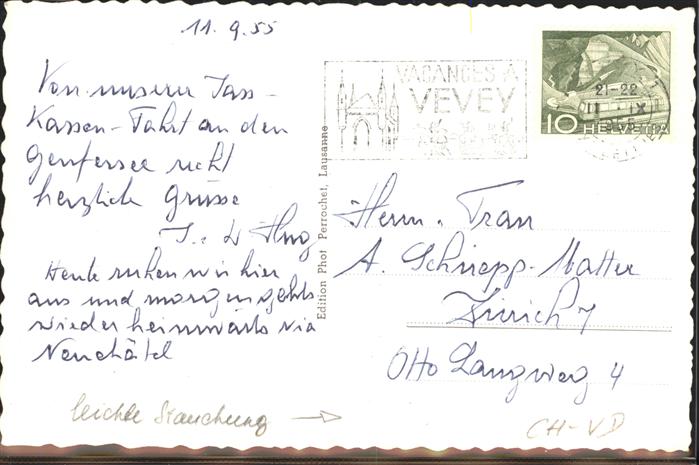 11.9.55
Von unserer Jass-
Kassen-Fahrt an den
Genfersee recht
herzliche Grüsse
J. & Hug
Heute ruhen wir hier
aus und morgen gehts
wieder heimwärts via
Neuchâtel
leichte Stauchung →
Edition Phot Perrochet, Lausanne
VACANCES A
VEVEY
21-22
11 IX
10 HELVETIA
Herrn. Frau
A. Schnepp-Matter
Zürich 7
Otto Langweg 4
CH-VD